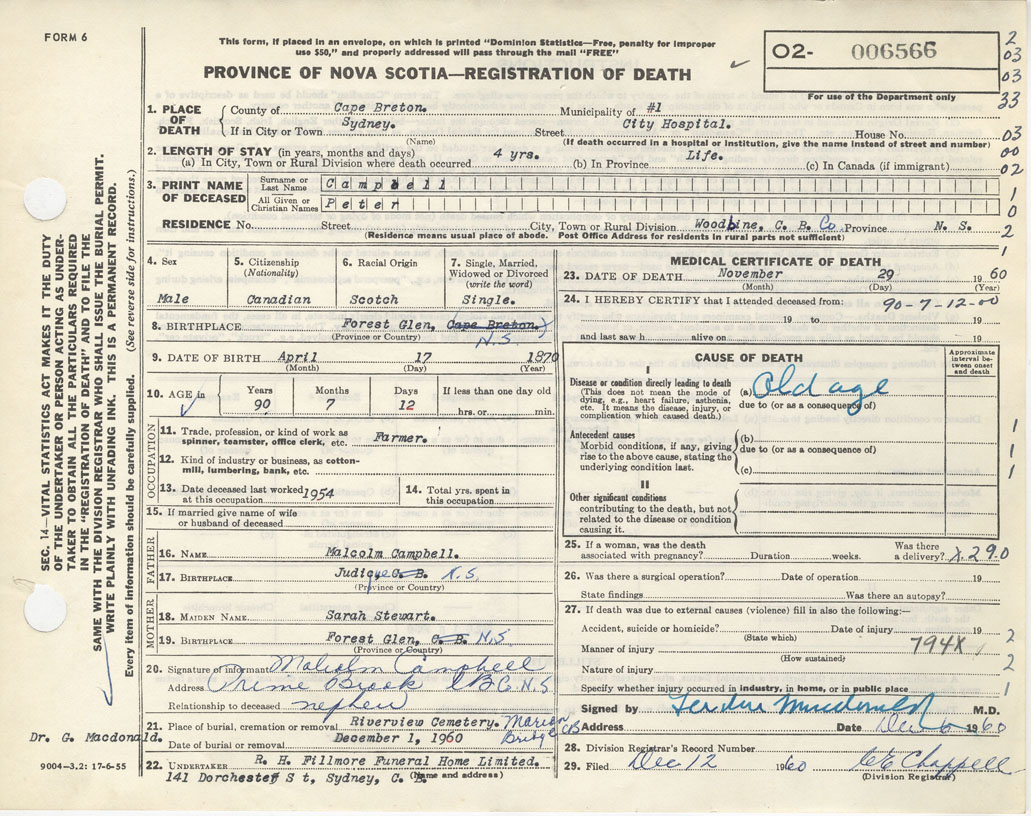 FORM 6
This form, if placed in an envelope, on which is printed "Dominion Statistics—Free, penalty for improper
use $50," and properly addressed will pass through the mail "FREE"
PROVINCE OF NOVA SCOTIA—REGISTRATION OF DEATH
O2- 006566
For use of the Department only
2
03
03
33
03
00
02
1
0
2
1. PLACE OF DEATH County of Cape Breton. Municipality of #1
If in City or Town Sydney. Street City Hospital. House No.
(Name) (If death occurred in a hospital or institution, give the name instead of street and number)
2. LENGTH OF STAY (in years, months and days)
(a) In City, Town or Rural Division where death occurred 4 yrs. (b) In Province Life. (c) In Canada (if immigrant)
3. PRINT NAME OF DECEASED
Surname or Last Name Campbell
All Given or Christian Names Peter
RESIDENCE No. Street City, Town or Rural Division Woodbine, C. B. Co Province N. S.
(Residence means usual place of abode. Post Office Address for residents in rural parts not sufficient)
SEC. 14—VITAL STATISTICS ACT MAKES IT THE DUTY
OF THE UNDERTAKER OR PERSON ACTING AS UNDER-
TAKER TO OBTAIN ALL THE PARTICULARS REQUIRED
IN THE "REGISTRATION OF DEATH" AND TO FILE THE
SAME WITH THE DIVISION REGISTRAR WHO SHALL ISSUE THE BURIAL PERMIT.
WRITE PLAINLY WITH UNFADING INK. THIS IS A PERMANENT RECORD.
Every item of information should be carefully supplied. (See reverse side for instructions.)
4. Sex
Male
5. Citizenship
(Nationality)
Canadian
6. Racial Origin
Scotch
7. Single, Married,
Widowed or Divorced
(write the word)
Single.
8. BIRTHPLACE Forest Glen, Cape Breton.
(Province or Country) N.S
9. DATE OF BIRTH April 17 1870
(Month) (Day) (Year)
10. AGE in
Years 90
Months 7
Days 12
If less than one day old
hrs. or min.
OCCUPATION
11. Trade, profession, or kind of work as
spinner, teamster, office clerk, etc. Farmer.
12. Kind of industry or business, as cotton-
mill, lumbering, bank, etc.
13. Date deceased last worked
at this occupation 1954
14. Total yrs. spent in
this occupation
15. If married give name of wife
or husband of deceased
FATHER
16. NAME Malcolm Campbell.
17. BIRTHPLACE Judique C. B. N.S
(Province or Country)
MOTHER
18. MAIDEN NAME Sarah Stewart.
19. BIRTHPLACE Forest Glen, C. B. N.S
(Province or Country)
20. Signature of informant Malcolm Campbell
Address Prime Brook C.B C. N.S
Relationship to deceased nephew
21. Place of burial, cremation or removal Riverview Cemetery. Marion Bridge CB
Date of burial or removal December 1, 1960
Dr. G. Macdonald.
22. UNDERTAKER R. H. Fillmore Funeral Home Limited.
141 Dorchester S t, Sydney, C. B. (Name and address)
9004-3.2: 17-6-55
MEDICAL CERTIFICATE OF DEATH
23. DATE OF DEATH November 29 1960
(Month) (Day) (Year)
24. I HEREBY CERTIFY that I attended deceased from: 90-7-12-00
19 to 19
and last saw h alive on 19
CAUSE OF DEATH
Approximate
interval between
onset and
death
I
Disease or condition directly leading to death
(This does not mean the mode of
dying, e.g., heart failure, asthenia,
etc. It means the disease, injury, or
complication which caused death.)
(a) Old age
due to (or as a consequence of)
Antecedent causes
Morbid conditions, if any, giving
rise to the above cause, stating the
underlying condition last.
(b)
due to (or as a consequence of)
(c)
II
Other significant conditions
contributing to the death, but not
related to the disease or condition
causing it.
1
1
1
1
25. If a woman, was the death
associated with pregnancy? Duration weeks. Was there
a delivery? X.290
26. Was there a surgical operation? Date of operation 19
State findings Was there an autopsy?
27. If death was due to external causes (violence) fill in also the following:—
Accident, suicide or homicide? Date of injury 19
(State which)
Manner of injury 794X
(How sustained)
Nature of injury
Specify whether injury occurred in industry, in home, or in public place
2
2
1
Signed by Macdonald M.D.
Address Date Dec 6 1960
28. Division Registrar's Record Number
29. Filed Dec 12 1960 CE Chappell
(Division Registrar)